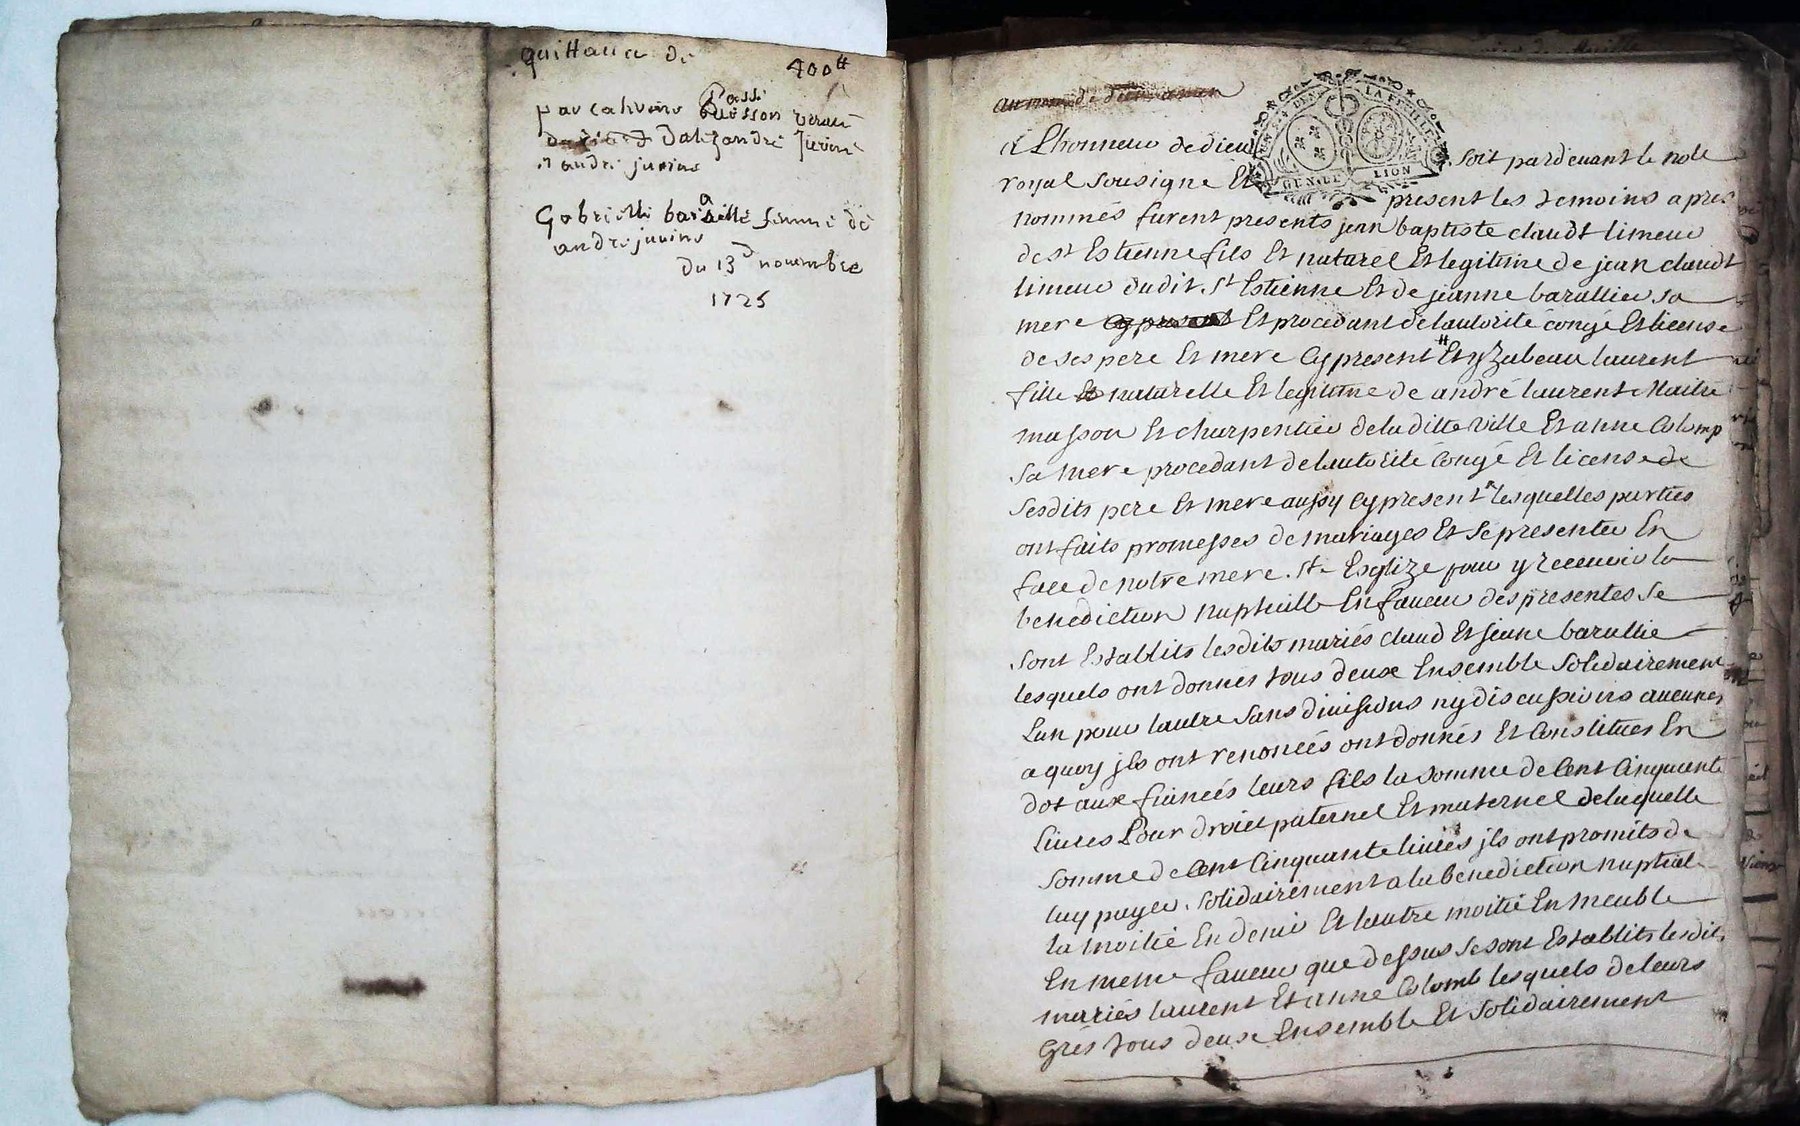 quittance de
400 ₶
par cahuino Passi
buisson veuve
dalexandre Juvine
et andre juvins
Gabrielle baraille femme de
andre juvins
du 13 novembre
1725
au nom de dieu amen
A Lhonneur de dieu soit pardevant le note
royal sousigne Et present les temoins apres
nommés furent presents jean baptiste claudt limeur
de st Estienne fils Et naturel Et legitime de jean claudt
limeur dudit st Estienne Et de jeanne barallier sa
mere cy present Et procedant de lautorité congé Et license
de ses pere Et mere cy present # Et yzabeau laurent
fille Et naturelle Et legitime de andré laurent Maitre
masson Et charpentier de la ditte ville Et anne Colomp
sa mere procedant de lautorité Congé Et license de
sesdits pere Et mere aussy cy present lesquelles parties
ont faits promesses de mariages Et se presenter En
face de notre mere ste Esglize pour y recevoir la
benediction nuptialle En faveur des presentes se
sont Establits lesdits mariés claud Et jeane barallie
lesquels ont donnés tous deux Ensemble solidairement
Lun pour lautre sans divisions ny discussions aucunes
a quoy jls ont renoncés ont donnés Et Constitués En
dot aux fiancés leurs fils la somme de Cent Cinquante
livres Pour droict paternel Et maternel de laquelle
somme de Cent Cinquante livres jls ont promits de
luy payer solidairement a la benediction nuptial
la moitié En denié Et lautre moitié En meuble
En meme faveur que dessus se sont Establits lesdit
mariés laurent Et anne Colomb lesquels de leurs
Grés tous deux Ensemble Et solidairement
GEN.DE LION